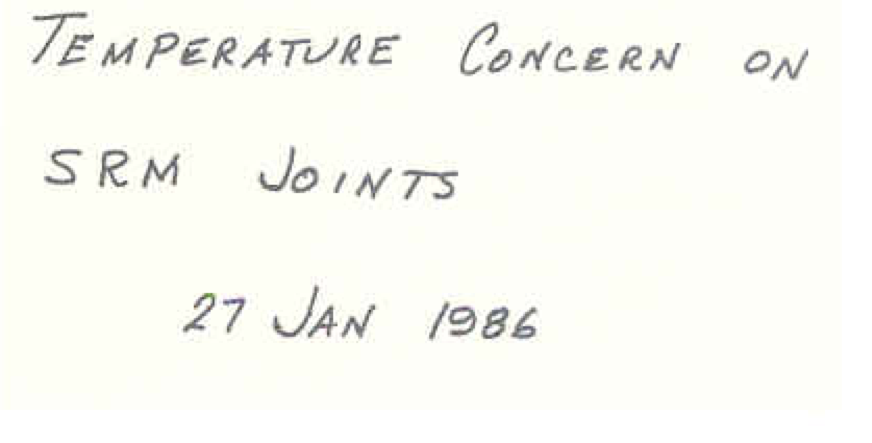 TEMPERATURE CONCERN ON
SRM JOINTS
27 JAN 1986